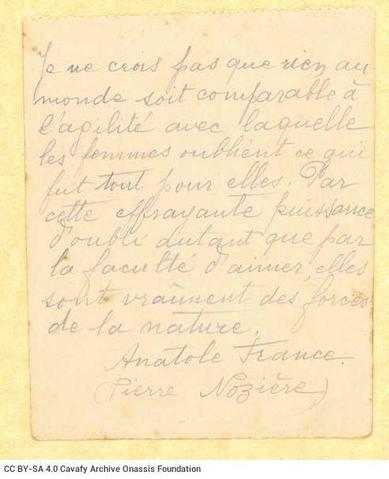 Je ne crois pas que rien au
monde soit comparable à
l'agilité avec laquelle
les femmes oublient ce qui
fut tout pour elles. Par
cette effrayante puissance
d'oubli autant que par
la faculté d'aimer, elles
sont vraiment des forces
de la nature.
Anatole France.
(Pierre Nozière)
CC BY-SA 4.0 Cavafy Archive Onassis Foundation